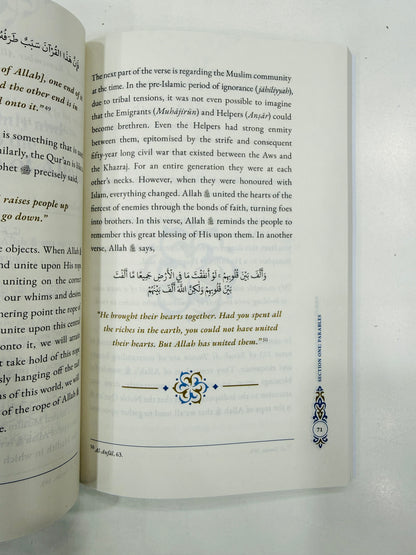 فَإِنَّ هَذَا الْقُرْآنَ سَبَبٌ طَرَفُهُ
of Allah], one end of
d the other end is in
d onto it." 49
is something that is
milarly, the Qur'an is
phet ﷺ precisely said,
raises people up
go down."
e objects. When Allah
and unite upon His rop
uniting on the corre
our whims and desire
hering point the rope o
unite upon this central
onto it, we will attain
t take hold of this rope
sly hanging off the tail
s of this world, we will
of the rope of Allah
.
The next part of the verse is regarding the Muslim community
at the time. In the pre-Islamic period of ignorance (jāhiliyyah),
due to tribal tensions, it was not even possible to imagine
that the Emigrants (Muhājirūn) and Helpers (Anṣār) could
become brethren. Even the Helpers had strong enmity
between them, epitomised by the strife and consequent
fifty-year long civil war that existed between the Aws and
the Khazraj. For an entire generation they were at each
other's necks. However, when they were honoured with
Islam, everything changed. Allah ﷻ united the hearts of the
fiercest of enemies through the bonds of faith, turning foes
into brothers. In this verse, Allah ﷻ reminds the people to
remember this great blessing of His upon them. In another
verse, Allah ﷻ says,
وَأَلَّفَ بَيْنَ قُلُوبِهِمْ ۚ لَوْ أَنفَقْتَ مَا فِي الْأَرْضِ جَمِيعًا مَّا أَلَّفْتَ
بَيْنَ قُلُوبِهِمْ وَلَٰكِنَّ اللَّهَ أَلَّفَ بَيْنَهُمْ
"He brought their hearts together. Had you spent all
the riches in the earth, you could not have united
their hearts. But Allah has united them." 50
50 Al-Anfāl, 63.
SECTION ONE: PARABLES
71